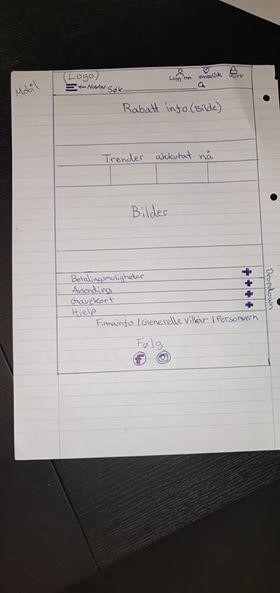 Mobil
(Logo)
Logg inn
ønskeliste
kurv
Søk
Rabatt info (Bilde)
Trender akkutat nå
Bilder
Betalingsmuligheter
Avsending
Gavekort
Hjelp
Dropdown
Firmainfo / Generelle vilkår / Personvern
Følg
f